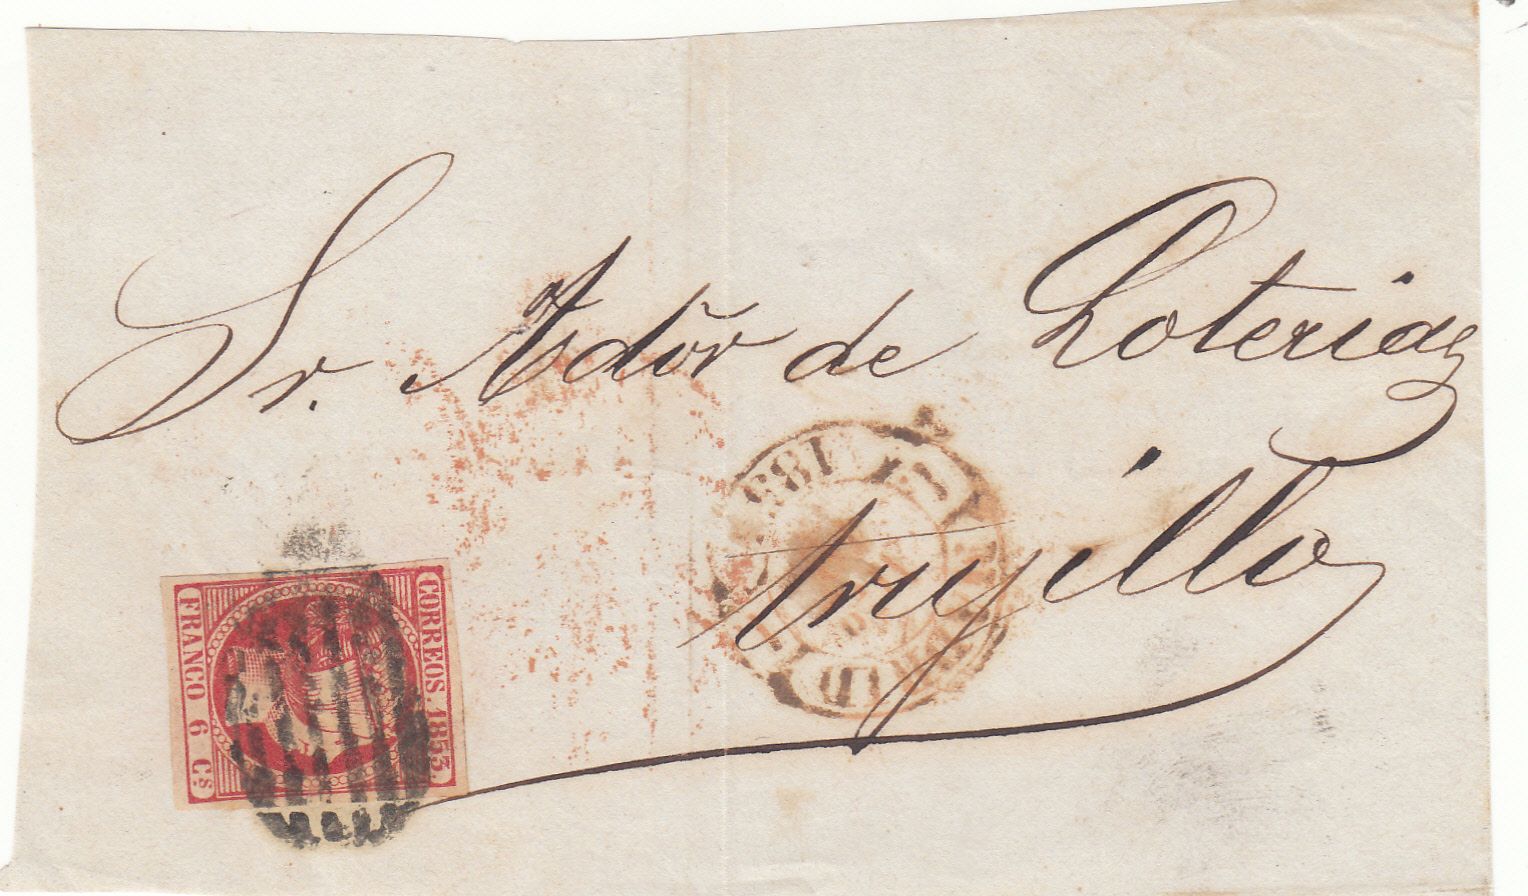 Sr. Adōr de Loterias
Trujillo
CORREOS. 1853.
FRANCO 6 Cs